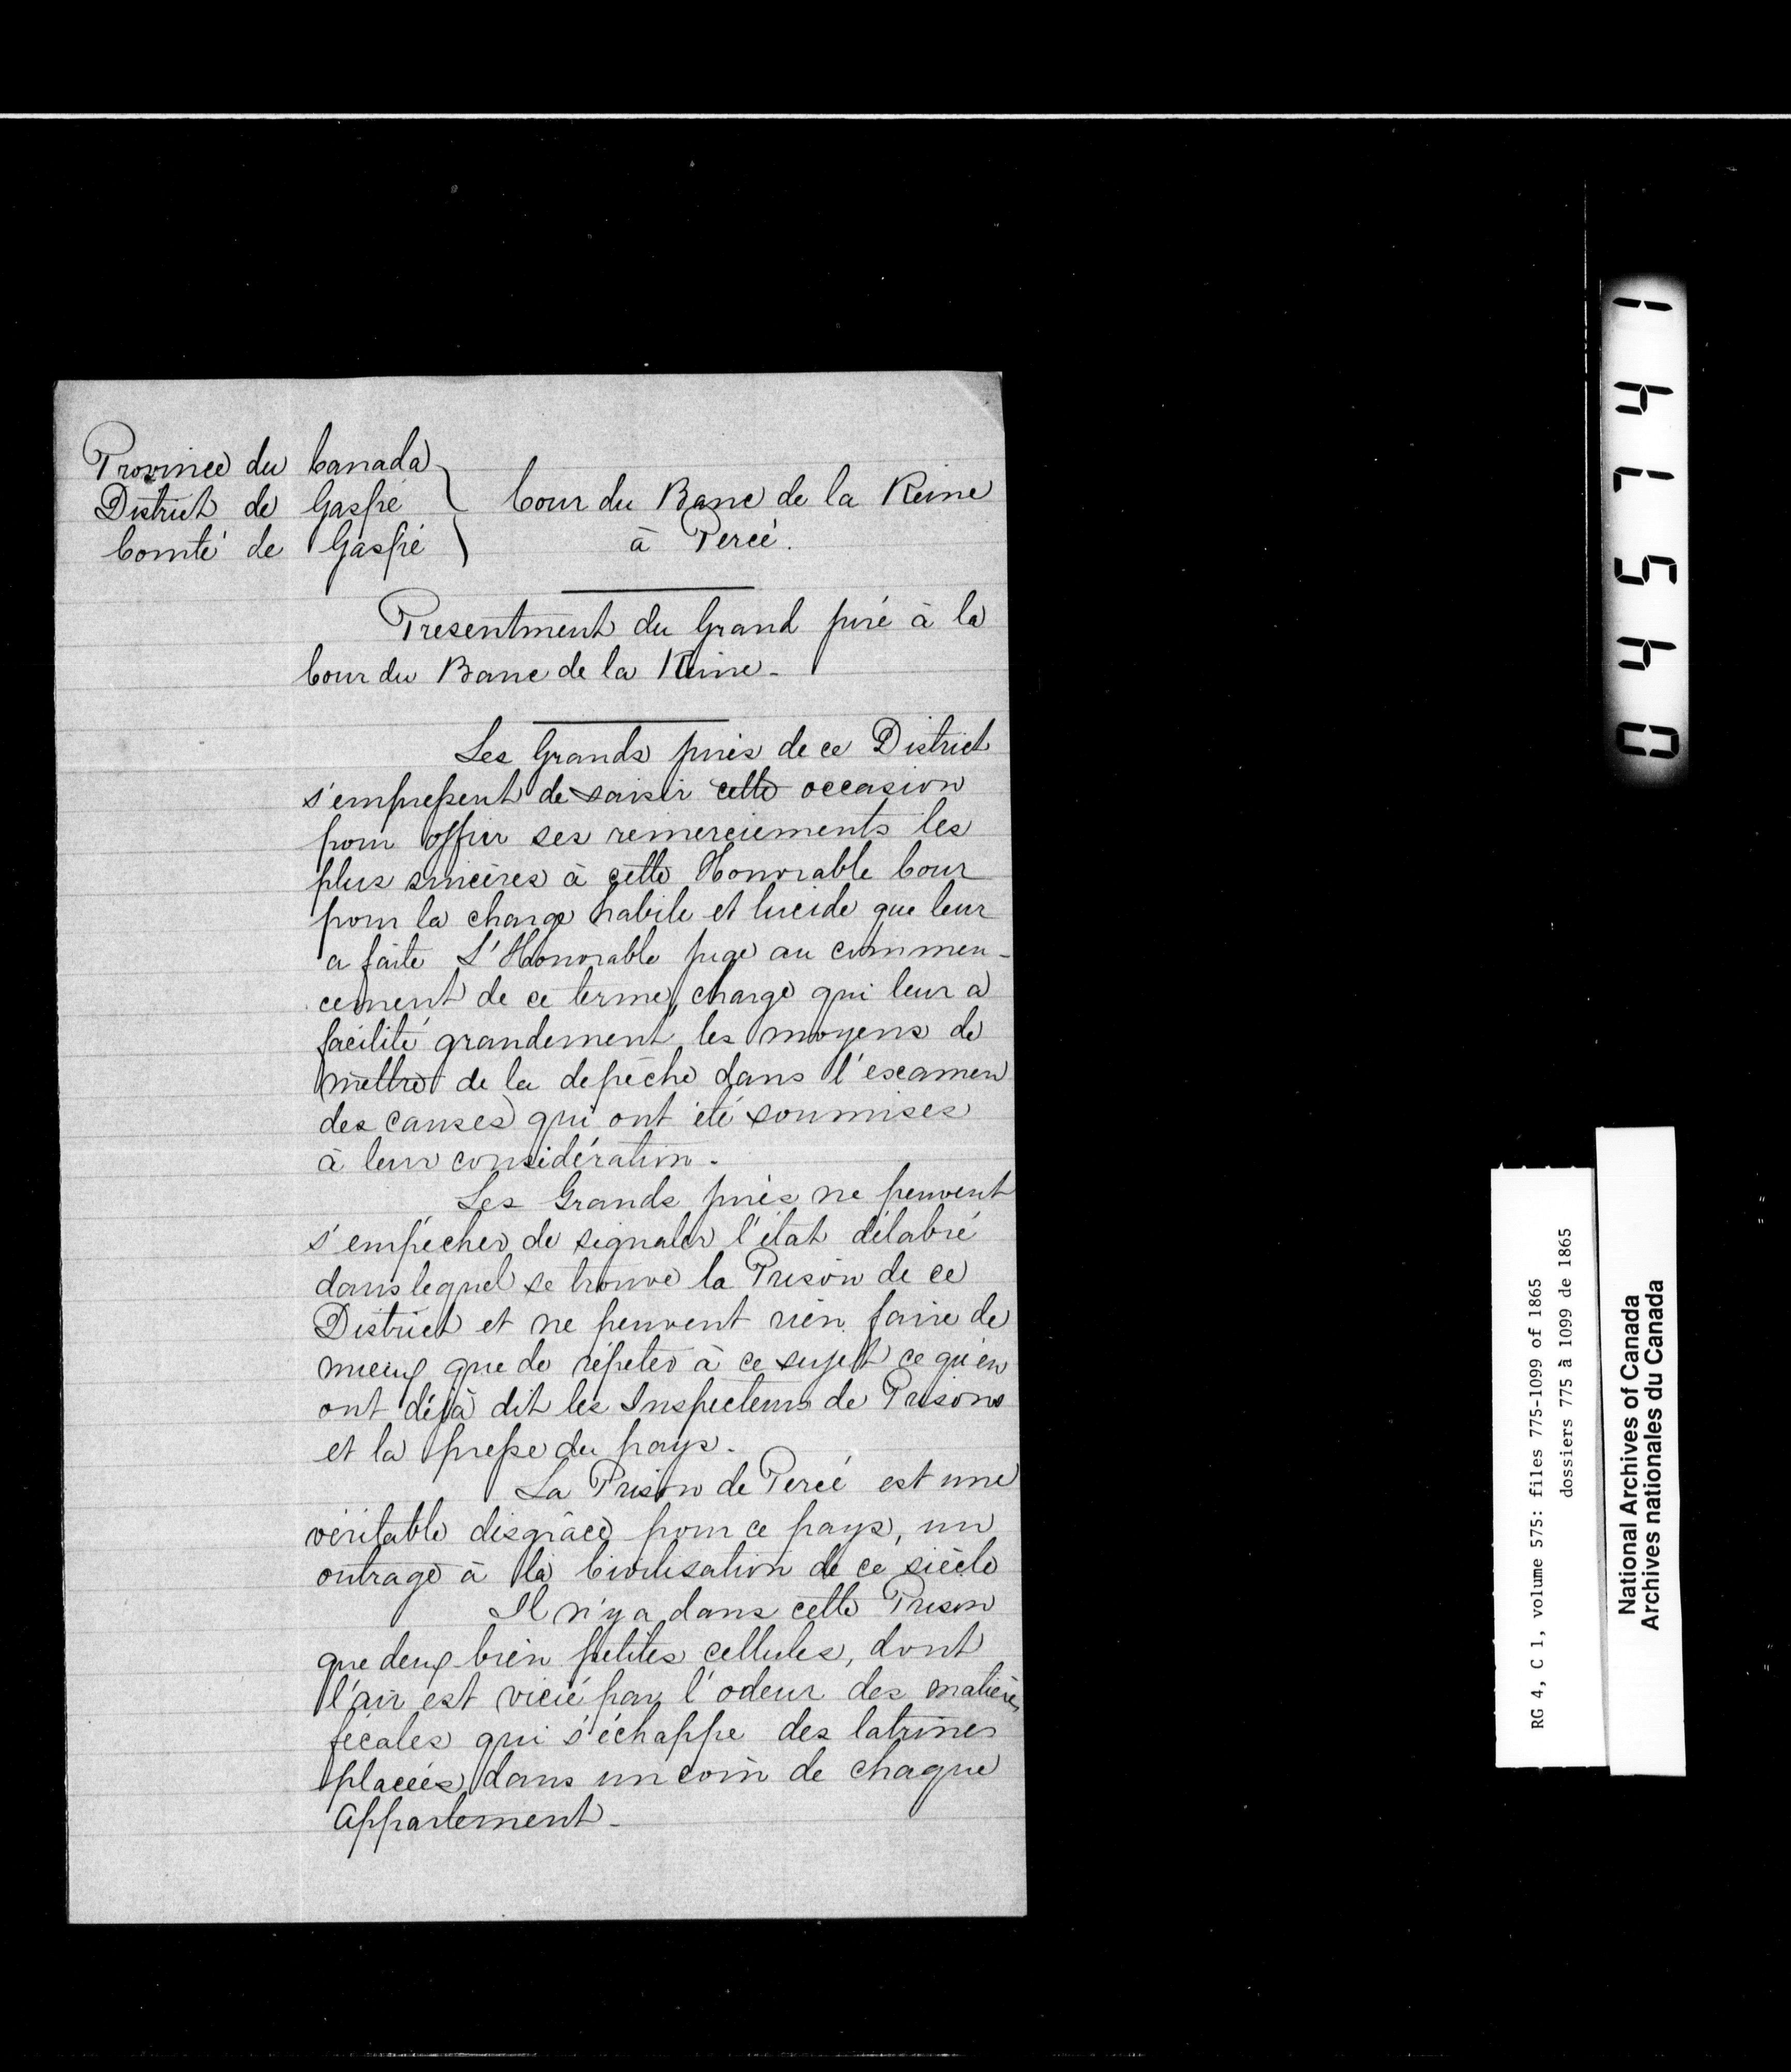 Province du Canada
District de Gaspé
Comté de Gaspé
Cour du Banc de la Reine
à Percé.
Presentment du Grand juré à la
Cour du Banc de la Reine -
Les Grands jurés de ce District
s'empressent de saisir cette occasion
pour offrir ses remerciements les
plus sincères à cette Honorable Cour
pour la charge habile et lucide que leur
a faite L'Honorable juge au commen-
cement de ce terme, charge qui leur a
facilité grandement les moyens de
mettre de la depêche dans l'examen
des causes qui ont été soumises
à leur considération -
Les Grands jurés ne peuvent
s'empêcher de signaler l'état délabré
dans lequel se trouve la Prison de ce
District et ne peuvent rien faire de
mieux que de répeter à ce sujet ce qu'en
ont déjà dit les Inspecteurs de Prisons
et la presse du pays.
La Prison de Percé est une
véritable disgrâce pour ce pays, un
outrage à la Civilisation de ce siècle
Il n'y a dans cette Prison
que deux bien petites cellules, dont
l'air est vicié par l'odeur des matières
fécales qui s'échappe des latrines
placées dans un coin de chaque
Appartement -
045741
RG 4, C 1, volume 575: files 775-1099 of 1865
dossiers 775 à 1099 de 1865
National Archives of Canada
Archives nationales du Canada